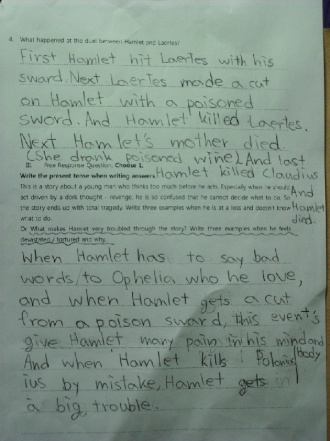 4. What happened at the duel between Hamlet and Laertes?
First Hamlet hit Laertes with his
sward. Next Laertes made a cut
on Hamlet with a poisoned
sword. And Hamlet killed Laertes.
Next Hamlet's mother died.
(She drank poisoned wine). And last
III. Free Response Question. Choose 1.
Write the present tense when writing answers. Hamlet killed Claudius
This is a story about a young man who thinks too much before he acts. Especially when he should And
act driven by a dark thought - revenge; he is so confused that he cannot decide what to do. So Hamlet
the story ends up with total tragedy. Write three examples when he is at a loss and doesn't know died.
what to do.
Or What makes Hamlet very troubled through the story? Write three examples when he feels
devastated / tortured and why.
When Hamlet has to say bad
words to Ophelia who he love,
and when Hamlet gets a cut
from a poison sward, this event's
give Hamlet many pain in his mind and body
And when Hamlet kills Polonius
ius by mistake, Hamlet gets in
a big trouble.